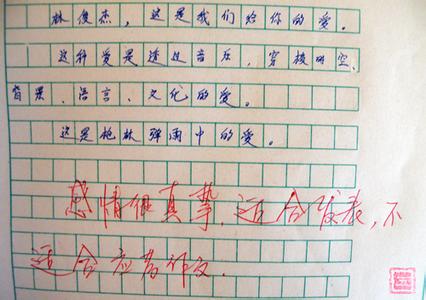 林俊杰，这是我们给你的爱。
这种爱是透过音乐，穿梭时空、
背景、语言、文化的爱。
这是枪林弹雨中的爱。
感情很真挚，适合发表，不
适合应考作文.